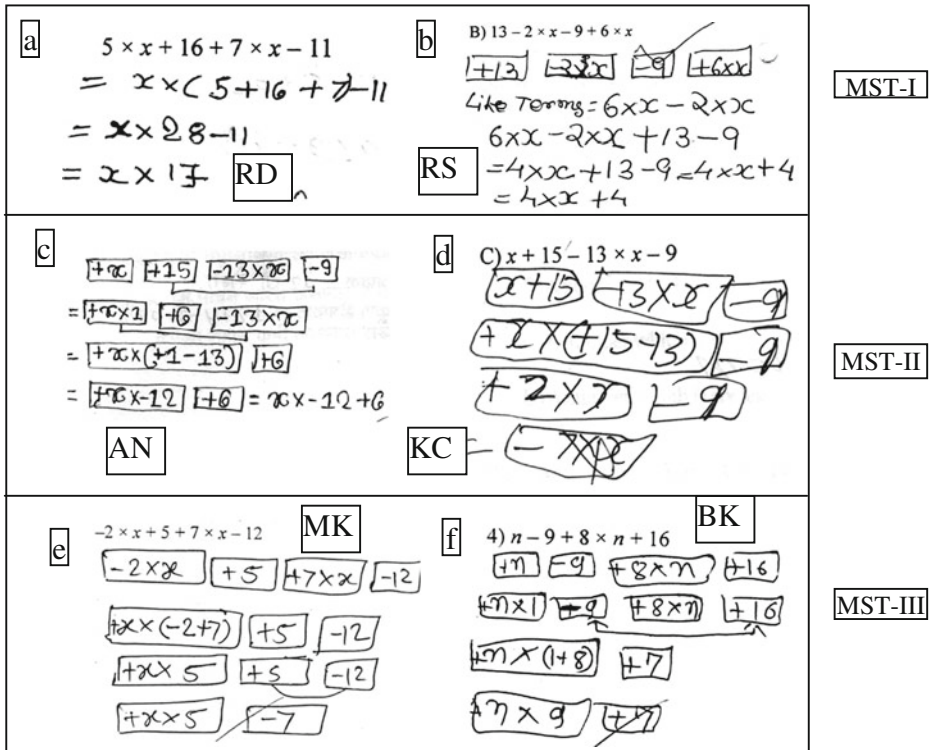 a
5 × x + 16 + 7 × x − 11
= x × (5 + 16 + 7) − 11
= x × 28 − 11
= x × 17
RD
b
B) 13 − 2 × x − 9 + 6 × x
+13 −2×x −9 +6×x
Like Terms = 6×x − 2×x
6×x − 2×x + 13 − 9
= 4×x + 13 − 9 = 4×x + 4
= 4×x + 4
RS
MST-I
c
+x +15 −13×x −9
= +x×1 +6 −13×x
= +x×(+1−13) +6
= +x×−12 +6 = x×−12+6
AN
d
C) x + 15 − 13 × x − 9
x+15 −13×x −9
+x×(+15−13) −9
+2×x −9
KC
MST-II
e
MK
−2 × x + 5 + 7 × x − 12
−2×x +5 +7×x −12
+x×(−2+7) +5 −12
+x×5 +5 −12
+x×5 −7
f
BK
4) n − 9 + 8 × n + 16
+n −9 +8×n +16
+n×1 −9 +8×n +16
+n×(1+8) +7
+n×9 +7
MST-III